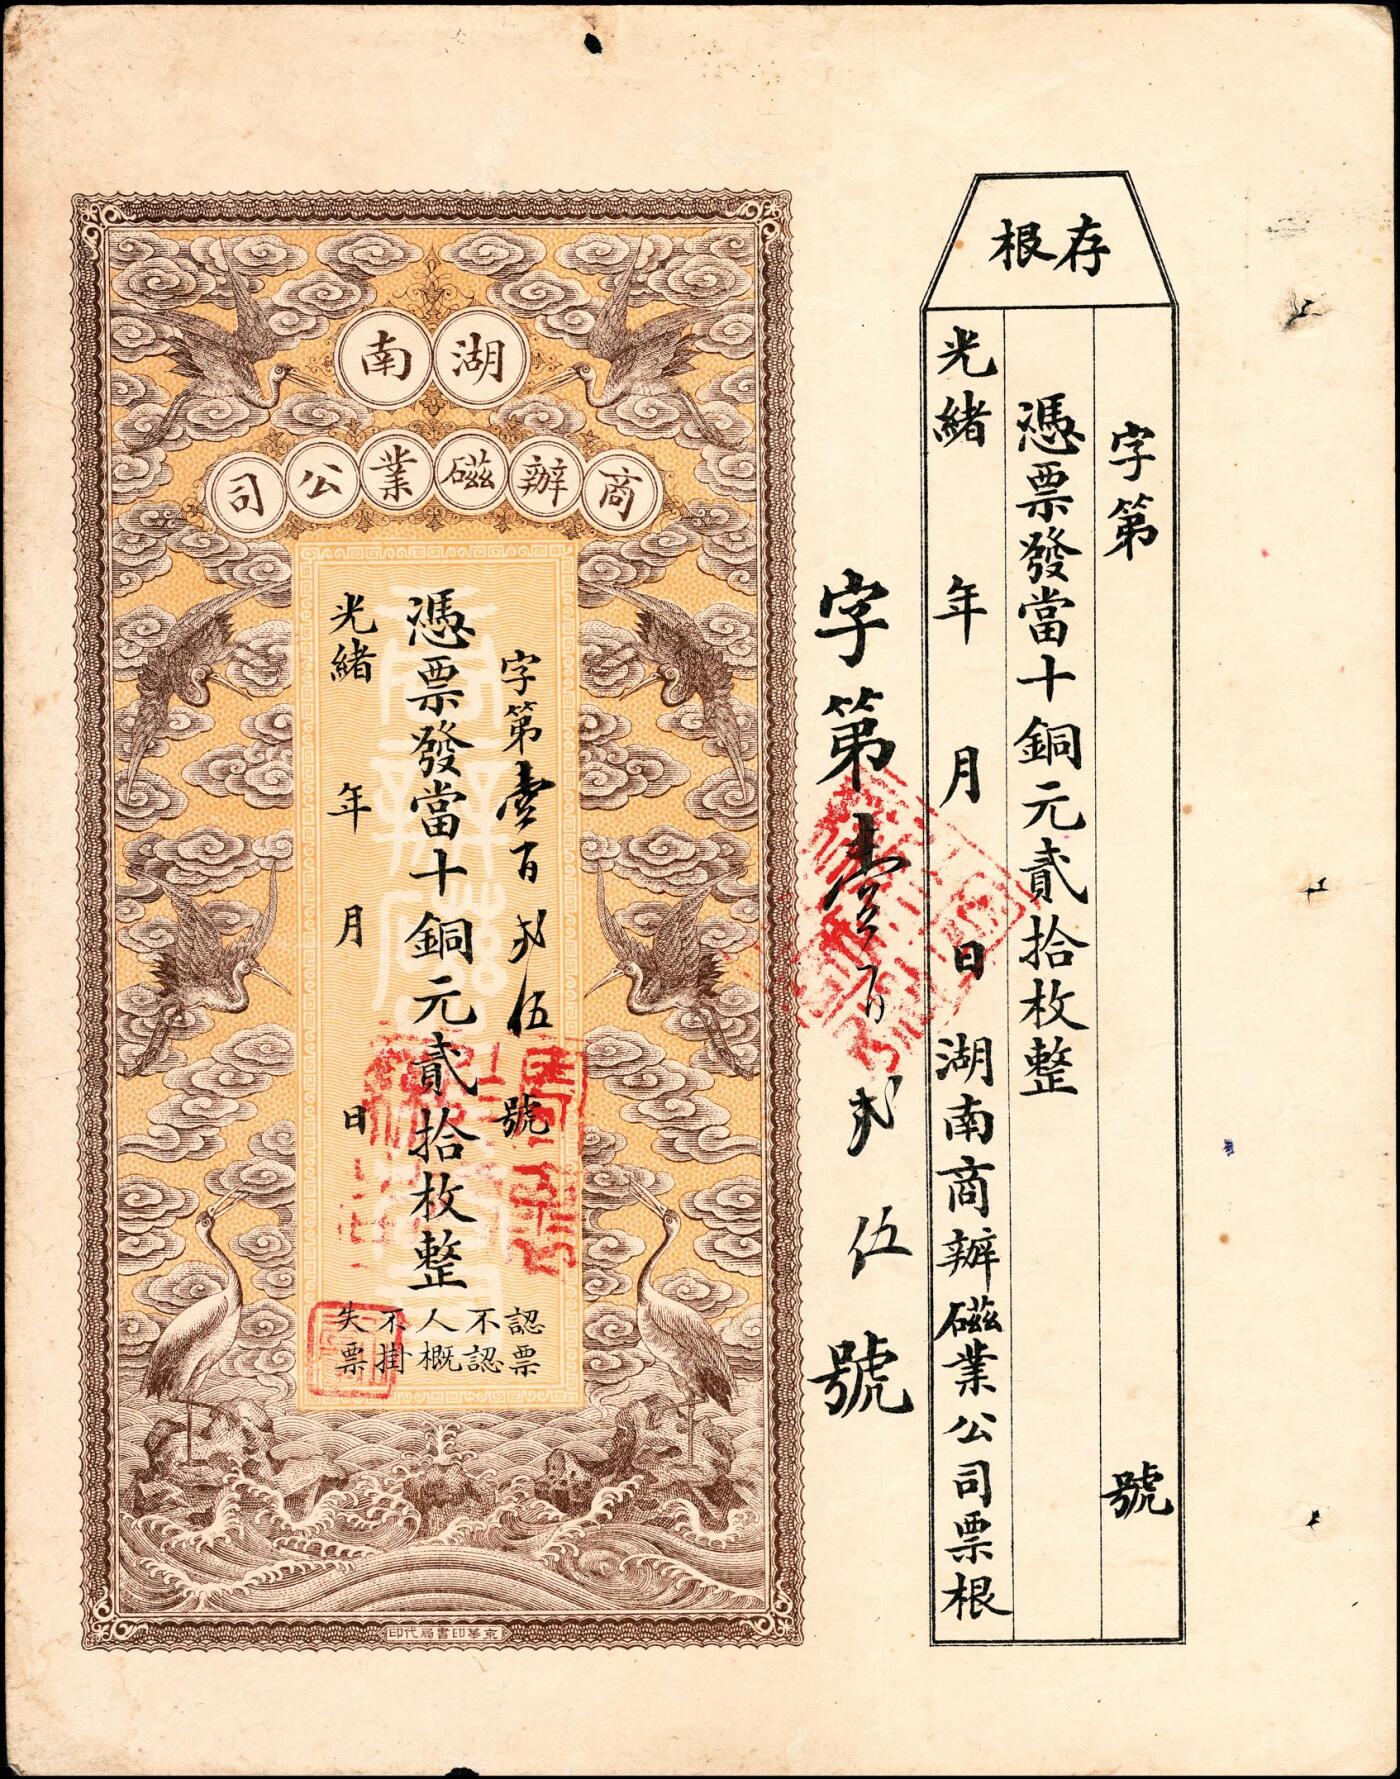 存根
字第 號
憑票發當十銅元貳拾枚整
光緒 年 月 日湖南商辦磁業公司票根
字第壹百弍伍號
湖南
商辦磁業公司
字第壹百弍伍號
憑票發當十銅元貳拾枚整
光緒 年 月 日
認票
不認
人概
不掛
失票
京華印書局代印